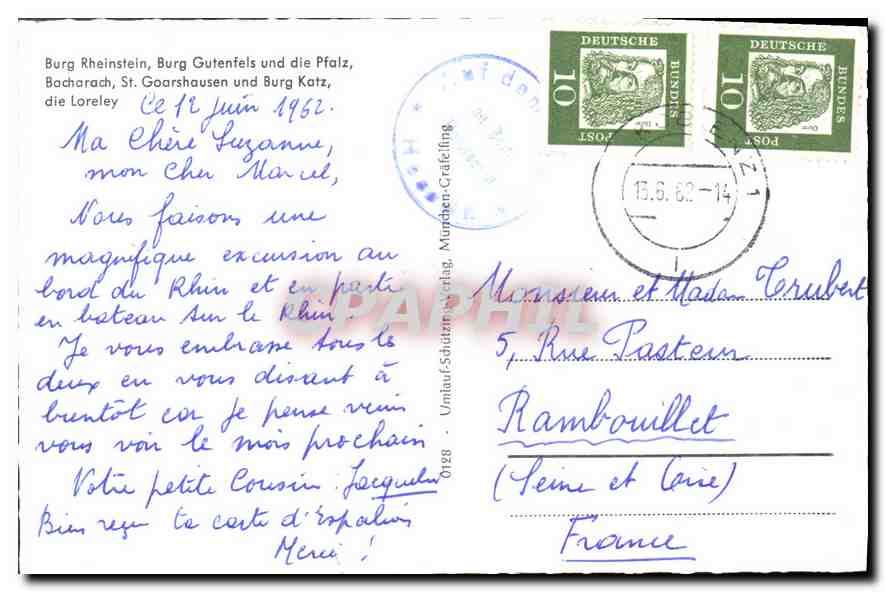 Burg Rheinstein, Burg Gutenfels und die Pfalz,
Bacharach, St. Goarshausen und Burg Katz,
die Loreley
Ce 12 juin 1962.
Ma Chère Suzanne,
mon Cher Marcel,
Nous faisons une
magnifique excursion au
bord du Rhin et en partie
en bateau sur le Rhin.
Je vous embrasse tous les
deux en vous disant à
bientôt car je pense venir
vous voir le mois prochain
Votre petite Cousine Jacqueline
Bien reçu ta carte d'Espalion
Merci !
0128 · Umlauf-Schützing-Verlag, München-Gräfelfing
auf dem
DEUTSCHE
BUNDES
POST
10
DEUTSCHE
BUNDES
POST
10
Dürer
13.6.62-14
1
CPAPHIL
Monsieur et Madame Trubert
5, Rue Pasteur
Rambouillet
(Seine et Oise)
France